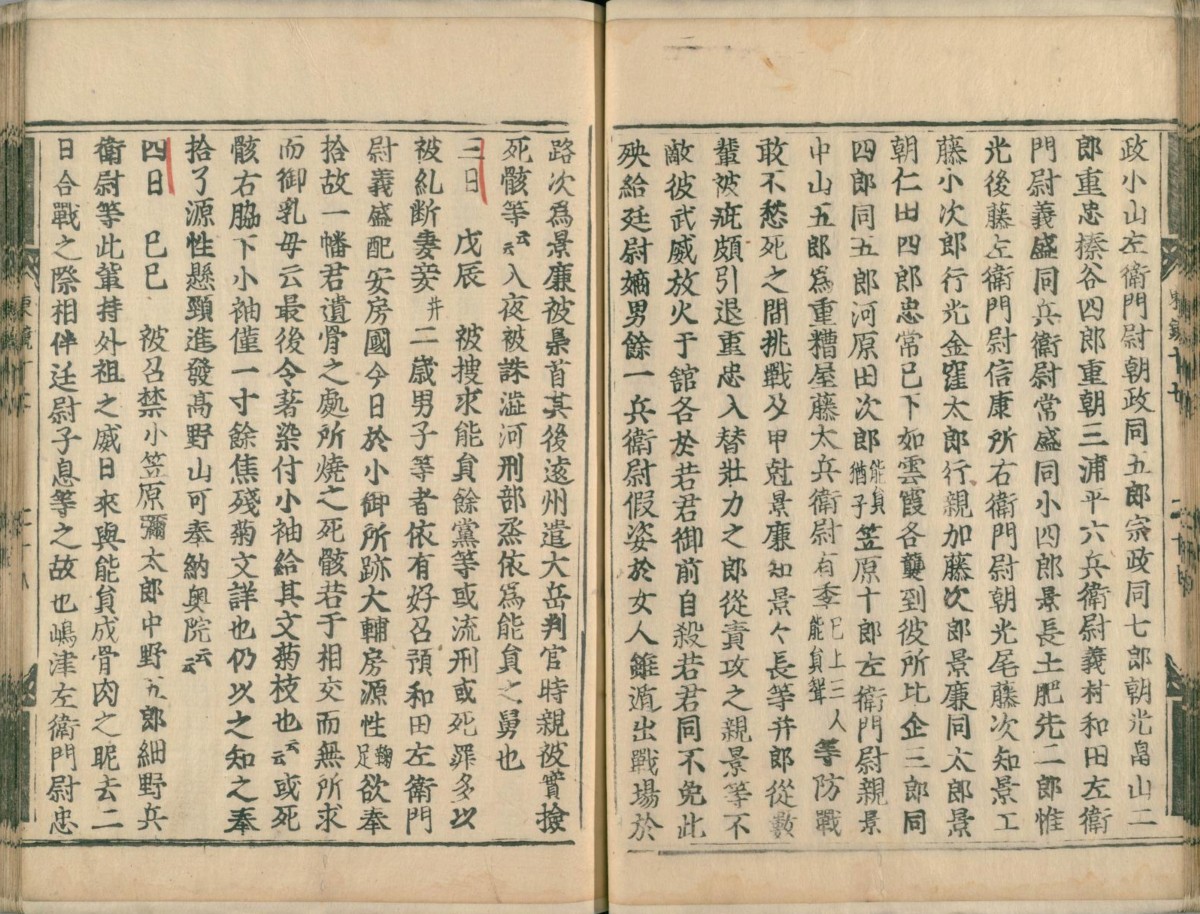 政小山左衛門尉朝政同五郎宗政同七郎朝光畠山二
郎重忠榛谷四郎重朝三浦平六兵衛尉義村和田左衛
門尉義盛同兵衛尉常盛同小四郎景長土肥先二郎惟
光後藤左衛門尉信康所右衛門尉朝光尾藤次知景工
藤小次郎行光金窪太郎行親加藤次郎景廉同太郎景
朝仁田四郎忠常已下如雲霞各襲到彼所比企三郎同
四郎同五郎河原田次郎能員猶子笠原十郎左衛門尉親景
中山五郎為重糟屋藤太兵衛尉有季已上三人能員聟等防戰
敢不愁死之間挑戰及甲尅景廉知景々長等并郎從數
輩被疵頗引退重忠入替壯力之郎從責攻之親景等不
敵彼武威放火于舘各於若君御前自殺若君同不免此
殃給廷尉嫡男餘一兵衛尉假姿於女人雖遁出戰場於
路次爲景廉被梟首其後遠州遣大岳判官時親被實撿
死骸等云云入夜被誅澁河刑部烝依爲能員之舅也
三日　戊辰　被搜求能員餘黨等或流刑或死罪多以
被糺断妻妾并二歳男子等者依有好召預和田左衛門
尉義盛配安房國今日於小御所跡大輔房源性鞠足欲奉
拾故一幡君遺骨之處所燒之死骸若于相交而無所求
而御乳母云最後令著染付小袖給其文菊枝也云云或死
骸右脇下小袖僅一寸餘焦残菊文詳也仍以之知之奉
拾了源性懸頸進發髙野山可奉納奥院云云
四日　巳巳　被召禁小笠原彌太郎中野五郎細野兵
衛尉等此輩持外祖之威日來與能員成骨肉之昵去二
日合戰之際相伴廷尉子息等之故也嶋津左衛門尉忠